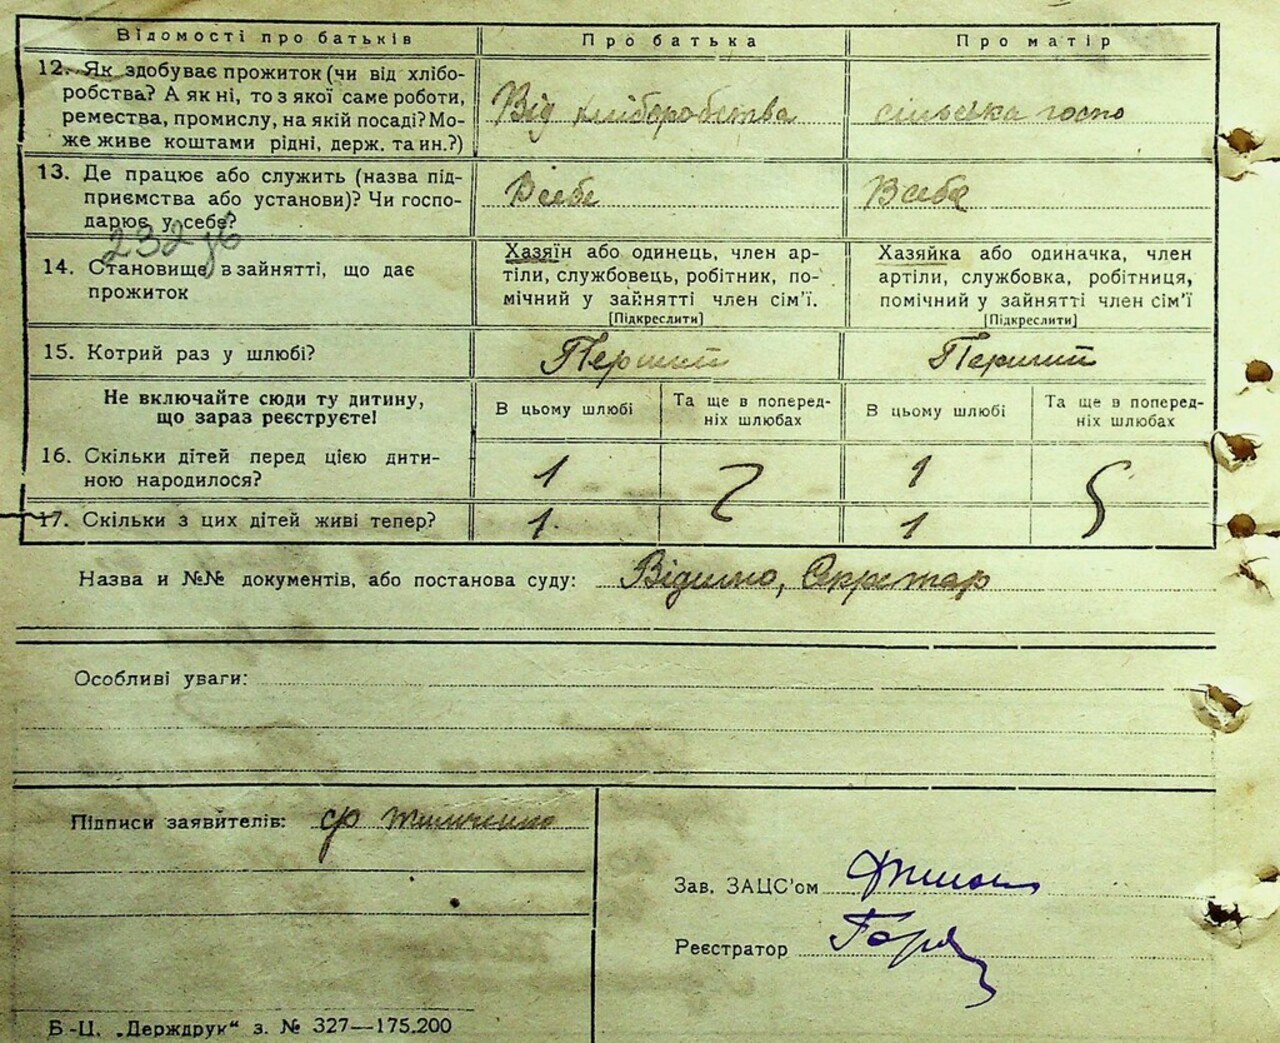 Відомості про батьків
Про батька
Про матір
12. Як здобуває прожиток (чи від хлібо-
робства? А як ні, то з якої саме роботи,
ремества, промислу, на якій посаді? Мо-
же живе коштами рідні, держ. та ин.?)
Від хліборобства
сільська госпо
13. Де працює або служить (назва під-
приємства або установи)? Чи госпо-
дарює у себе?
В себе
В себе
232
14. Становище в зайнятті, що дає
прожиток
Хазяїн або одинець, член ар-
тіли, службовець, робітник, по-
мічний у зайнятті член сім'ї.
[Підкреслити]
Хазяйка або одиначка, член
артіли, службовка, робітниця,
помічний у зайнятті член сім'ї
[Підкреслити]
15. Котрий раз у шлюбі?
Перший
Перший
Не включайте сюди ту дитину,
що зараз реєструєте!
В цьому шлюбі
Та ще в поперед-
ніх шлюбах
В цьому шлюбі
Та ще в поперед-
ніх шлюбах
16. Скільки дітей перед цією дити-
ною народилося?
1
1
17. Скільки з цих дітей живі тепер?
1.
1
Назва и №№ документів, або постанова суду:
Відишло, Секретар
Особливі уваги:
Підписи заявителів:
Зав. ЗАЦС'ом
Реєстратор
Б-Ц. „Держдрук“ з. № 327—175.200